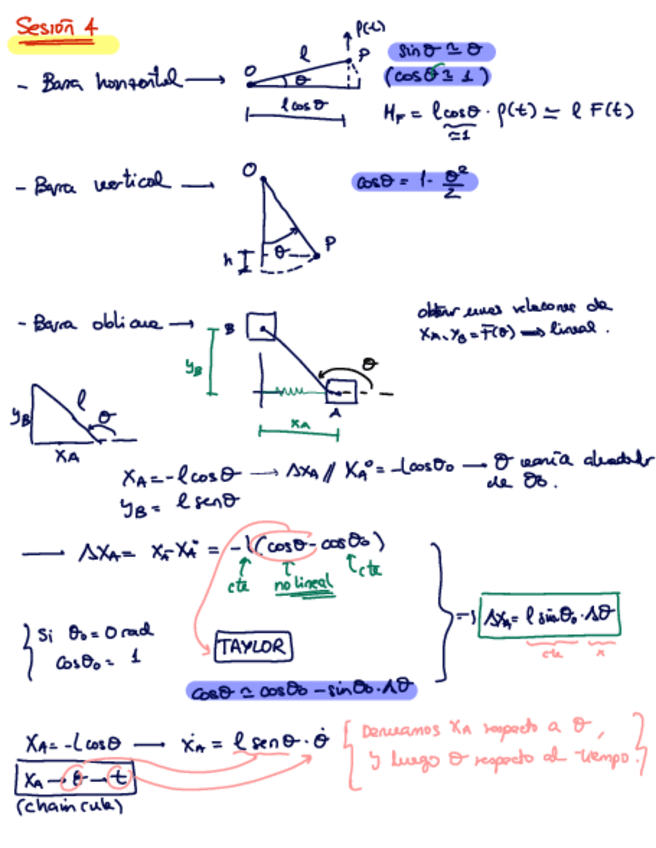 Sesión 4
- Barra horizontal → O l θ P P(t) l cosθ
sinθ ≃ θ
(cosθ ≃ 1)
M_F = l cosθ · P(t) ≃ l F(t)
≃1
- Barra vertical → O θ P h
cosθ = 1 - θ²/2
- Barra oblicua → B y_B θ A x_A
obtener unas relaciones de
x_A, y_B = F(θ) ⟹ lineal.
y_B l θ x_A
x_A = -l cosθ → Δx_A // x_A° = -l cosθ₀ → θ varía alrededor de θ₀.
y_B = l senθ
→ Δx_A = x_A - x_A° = -l (cosθ - cosθ₀)
cte no lineal cte
Si θ₀ = 0 rad
cosθ₀ = 1
TAYLOR
cosθ ≃ cosθ₀ - sinθ₀·Δθ
⟹ Δx_A = l sinθ₀·Δθ
cte x
x_A = -l cosθ → ẋ_A = l senθ · θ̇
[Derivamos x_A respecto a θ,
y luego θ respecto al tiempo.]
x_A → θ → t
(chain rule)